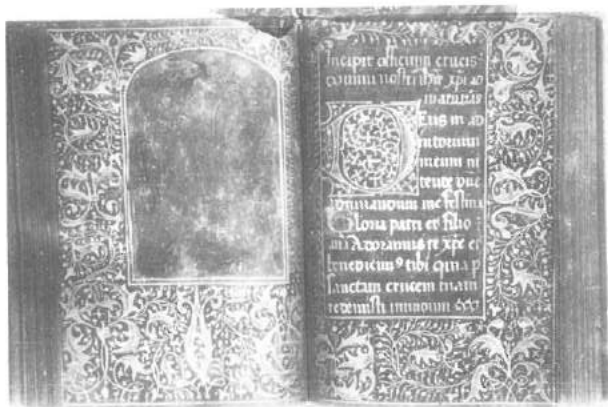 Incipit officium crucis
domini nostri ihū xpi ad
matutinas
Deus in ad
iutorium
meum in
tende dñe
adiuuandum me festina
Gloria patri et filio
Adoramus te xpe et
benedicimꝰ tibi Quia p
sanctam crucem tuam
redemisti mundum